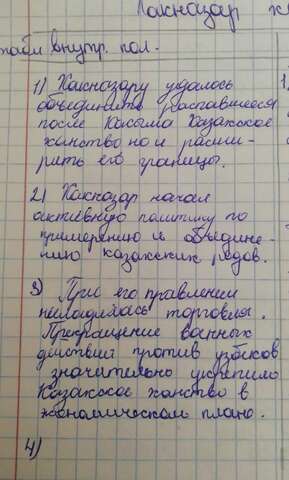 Хакназар х
внутр. пол.
1) Хакназару удалось
объединить распавшееся
после Касыма Казахское
ханство но и расши-
рить его границы.
2) Хакназар начал
активную политику по
примерению и объедине-
нию казахских родов.
3) При его правлении
наладилась торговля.
Прекращение военных
действий против узбеков
значительно укрепило
Казахское ханство в
экономическом плане.
4)